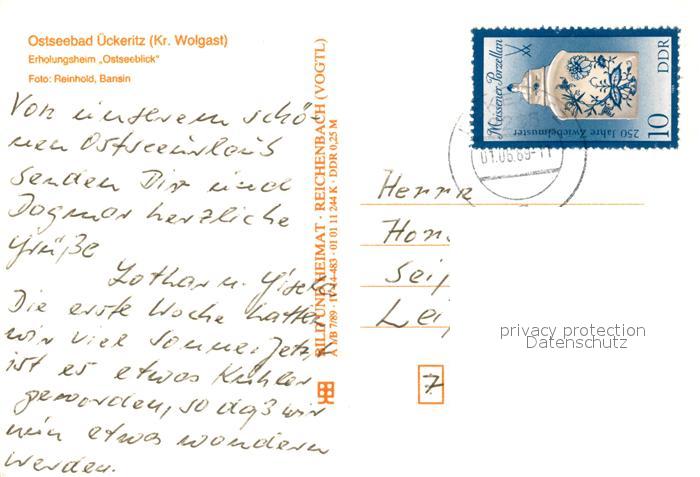 Ostseebad Ückeritz (Kr. Wolgast)
Erholungsheim „Ostseeblick"
Foto: Reinhold, Bansin
Von unserem schö-
nen Ostseeurlaub
senden Dir und
Dagmar herzliche
Grüße
Lothar u. Gisela
Die erste Woche hatten
wir viel Sonne. Jetzt
ist es etwas Kühler
geworden, so daß wir
nun etwas wandern
werden.
BILD UND HEIMAT · REICHENBACH (VOGTL)
A 1/B 7/89 · IV-14-483 · 01 01 11 244 K · DDR 0,25 M
Meissener Porzellan
250 Jahre Zwiebelmuster
10 DDR
01.06.89-11
Herrn
Hor
Seif
Lei
7
privacy protection
Datenschutz